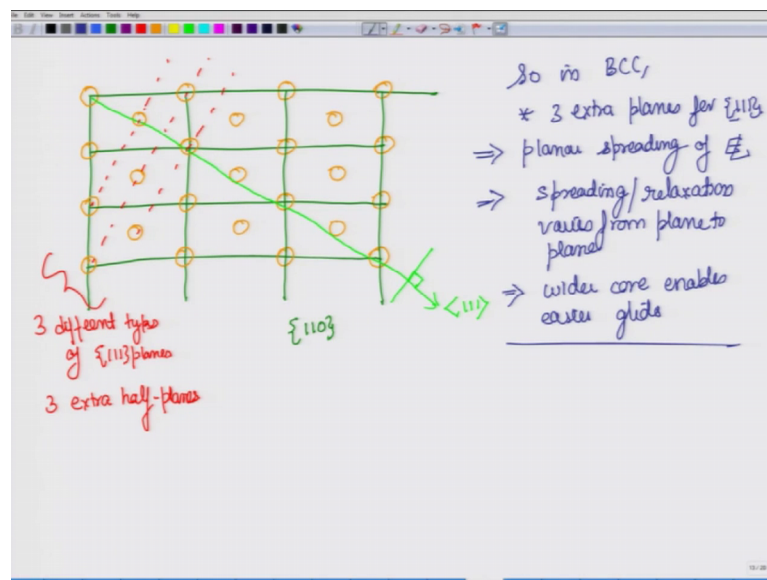 File Edit View Insert Actions Tools Help
So in BCC,
* 3 extra planes for {111}
⇒ planar spreading of
⇒ spreading/relaxation
varies from plane to
plane
⇒ wider core enables
easier glide
<111>
{110}
3 different types
of {111} planes
3 extra half-planes